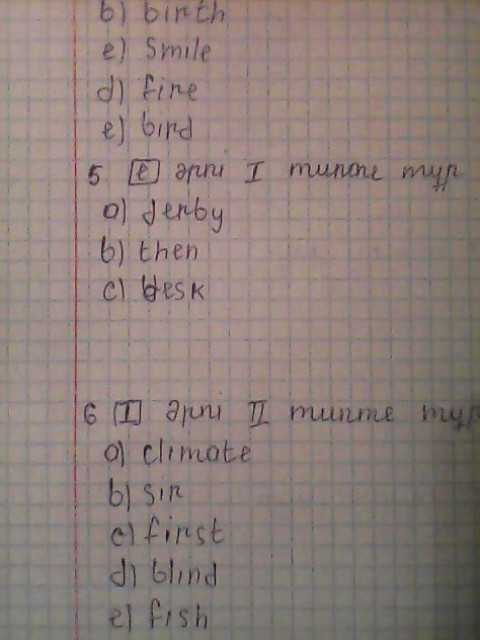 b) birth
e) Smile
d) fire
e) bird
5 [e] әрпі I типте тұр
a) derby
b) then
c) desk
6 [I] әрпі II типте тұр
a) climate
b) sir
c) first
d) blind
e) fish